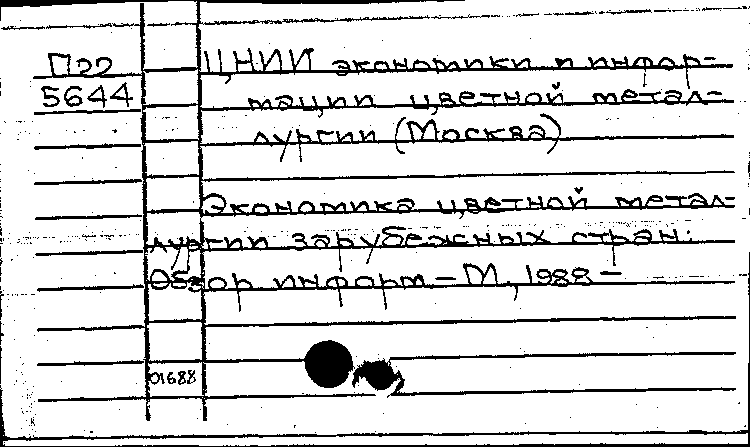 П22 ЦНИИ экономики и инфор-
5644 мации цветной метал-
лургии (Москва)
Экономика цветной метал-
лургии зарубежных стран:
Обзор информ - М., 1988 -
01688